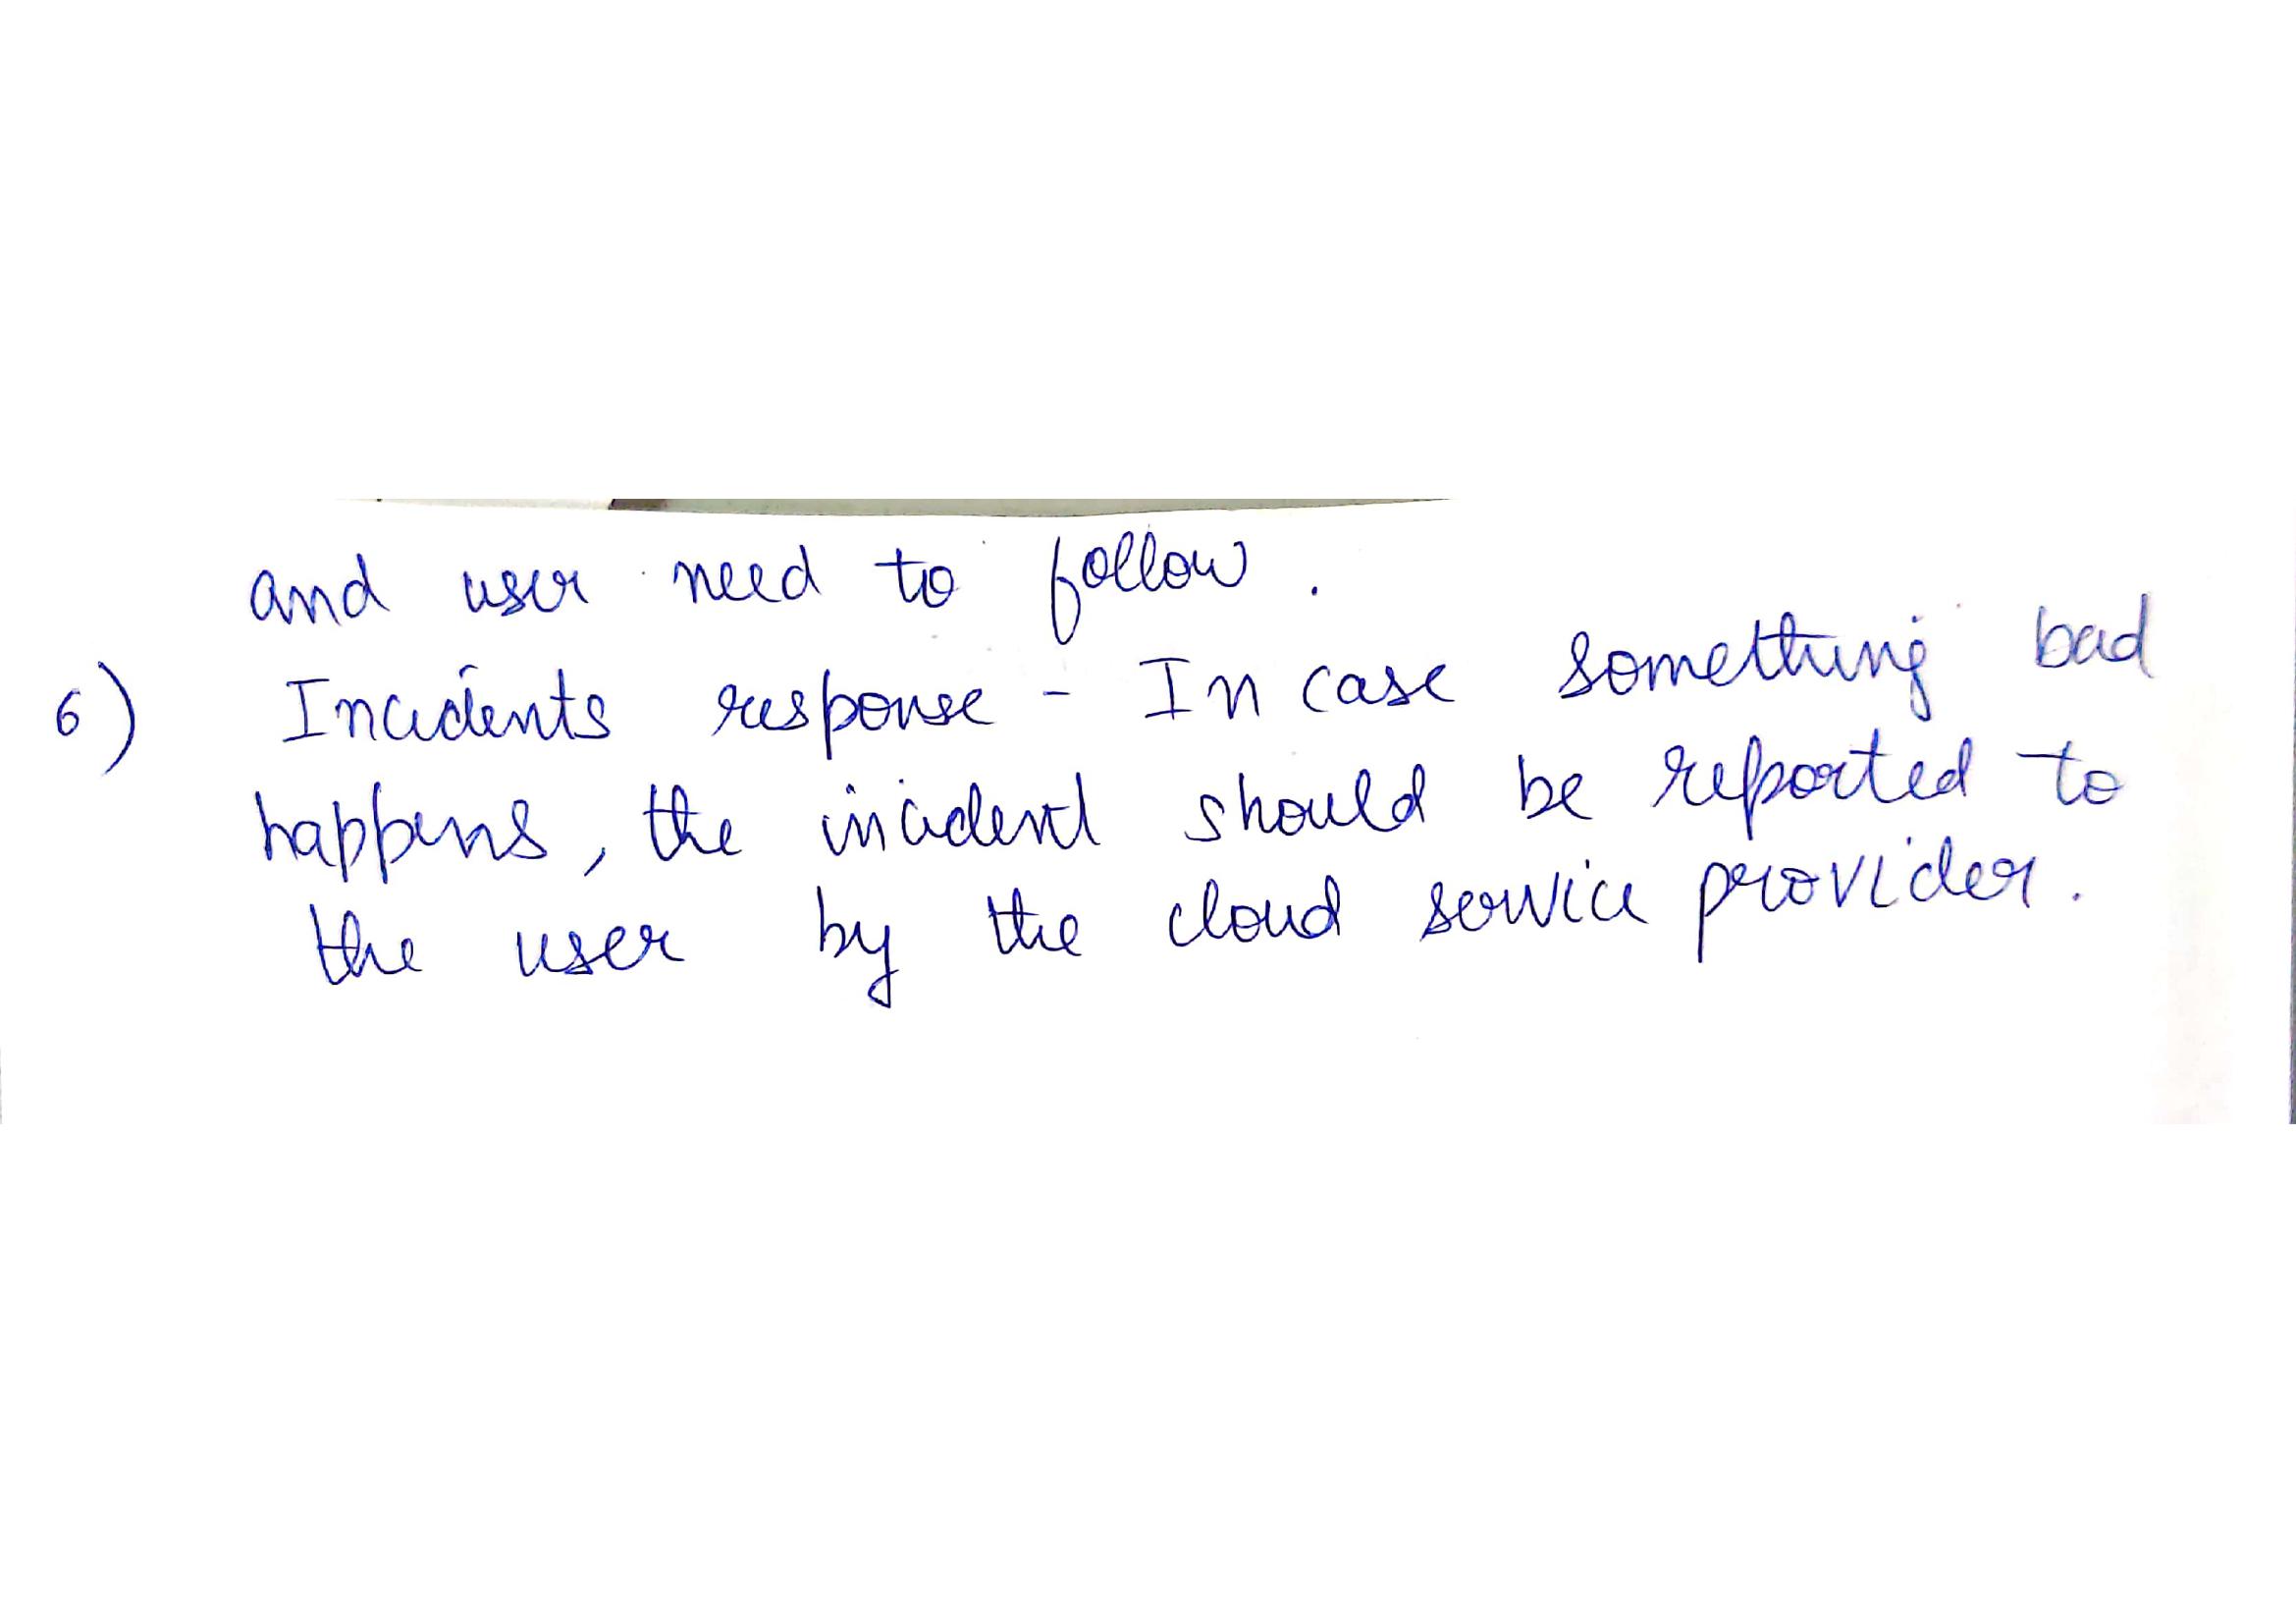 and user need to follow .
6) Incidents response - In case something bad
happens, the incident should be reported to
the user by the cloud service provider.